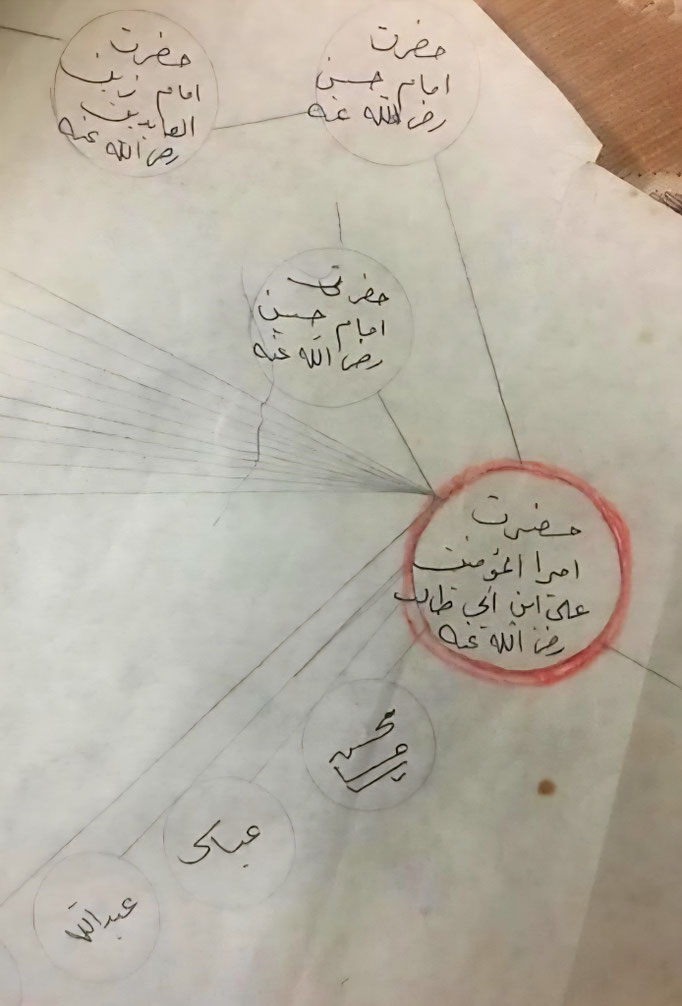 حضرت
امام حسن
رضی اللہ عنہ
حضرت
امام زین
العابدین
رضی اللہ عنہ
حضرت
امام حسین
رضی اللہ عنہ
حضرت
امیرا المؤمنین
علی ابن ابی طالب
رضی اللہ عنہ
محسن
عباس
عبداللہ